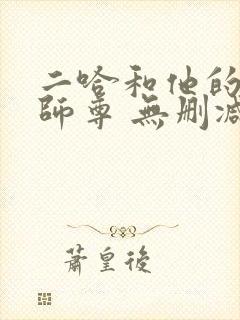 二哈和他的
師尊 無刪減
蕭皇後